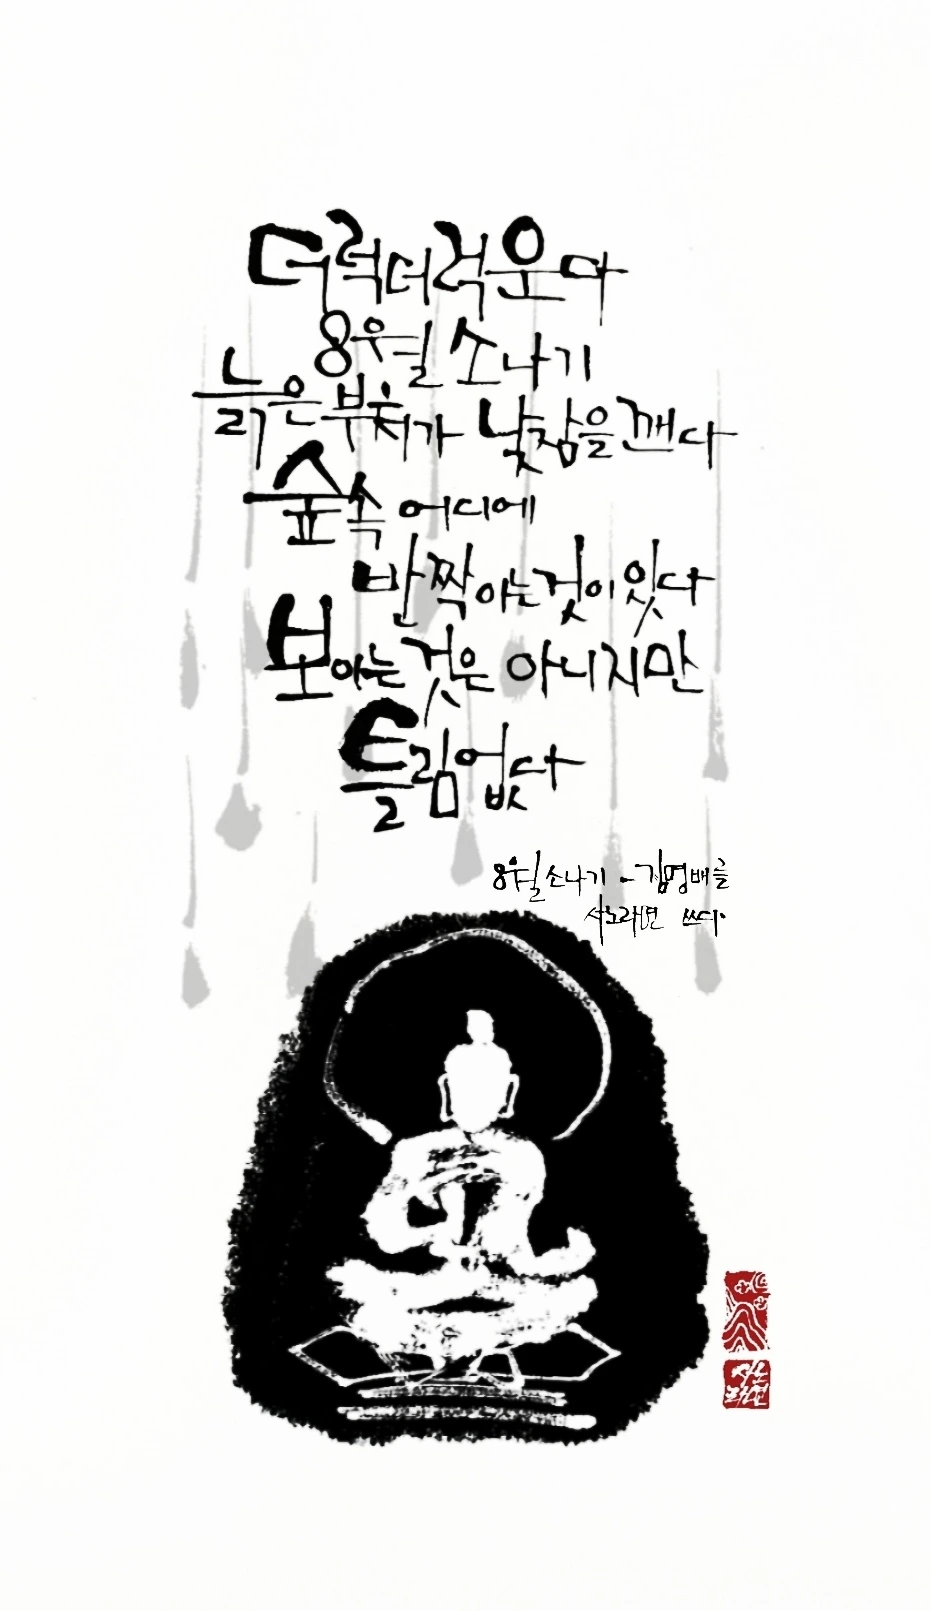 더럭더럭운다
8월 소나기
늙은 부처가 낮잠을 깨다
숲속 어디에
반짝이는것이 있다
보이는것은 아니지만
틀림없다
8월 소나기 - 김명배 글
쓰다.